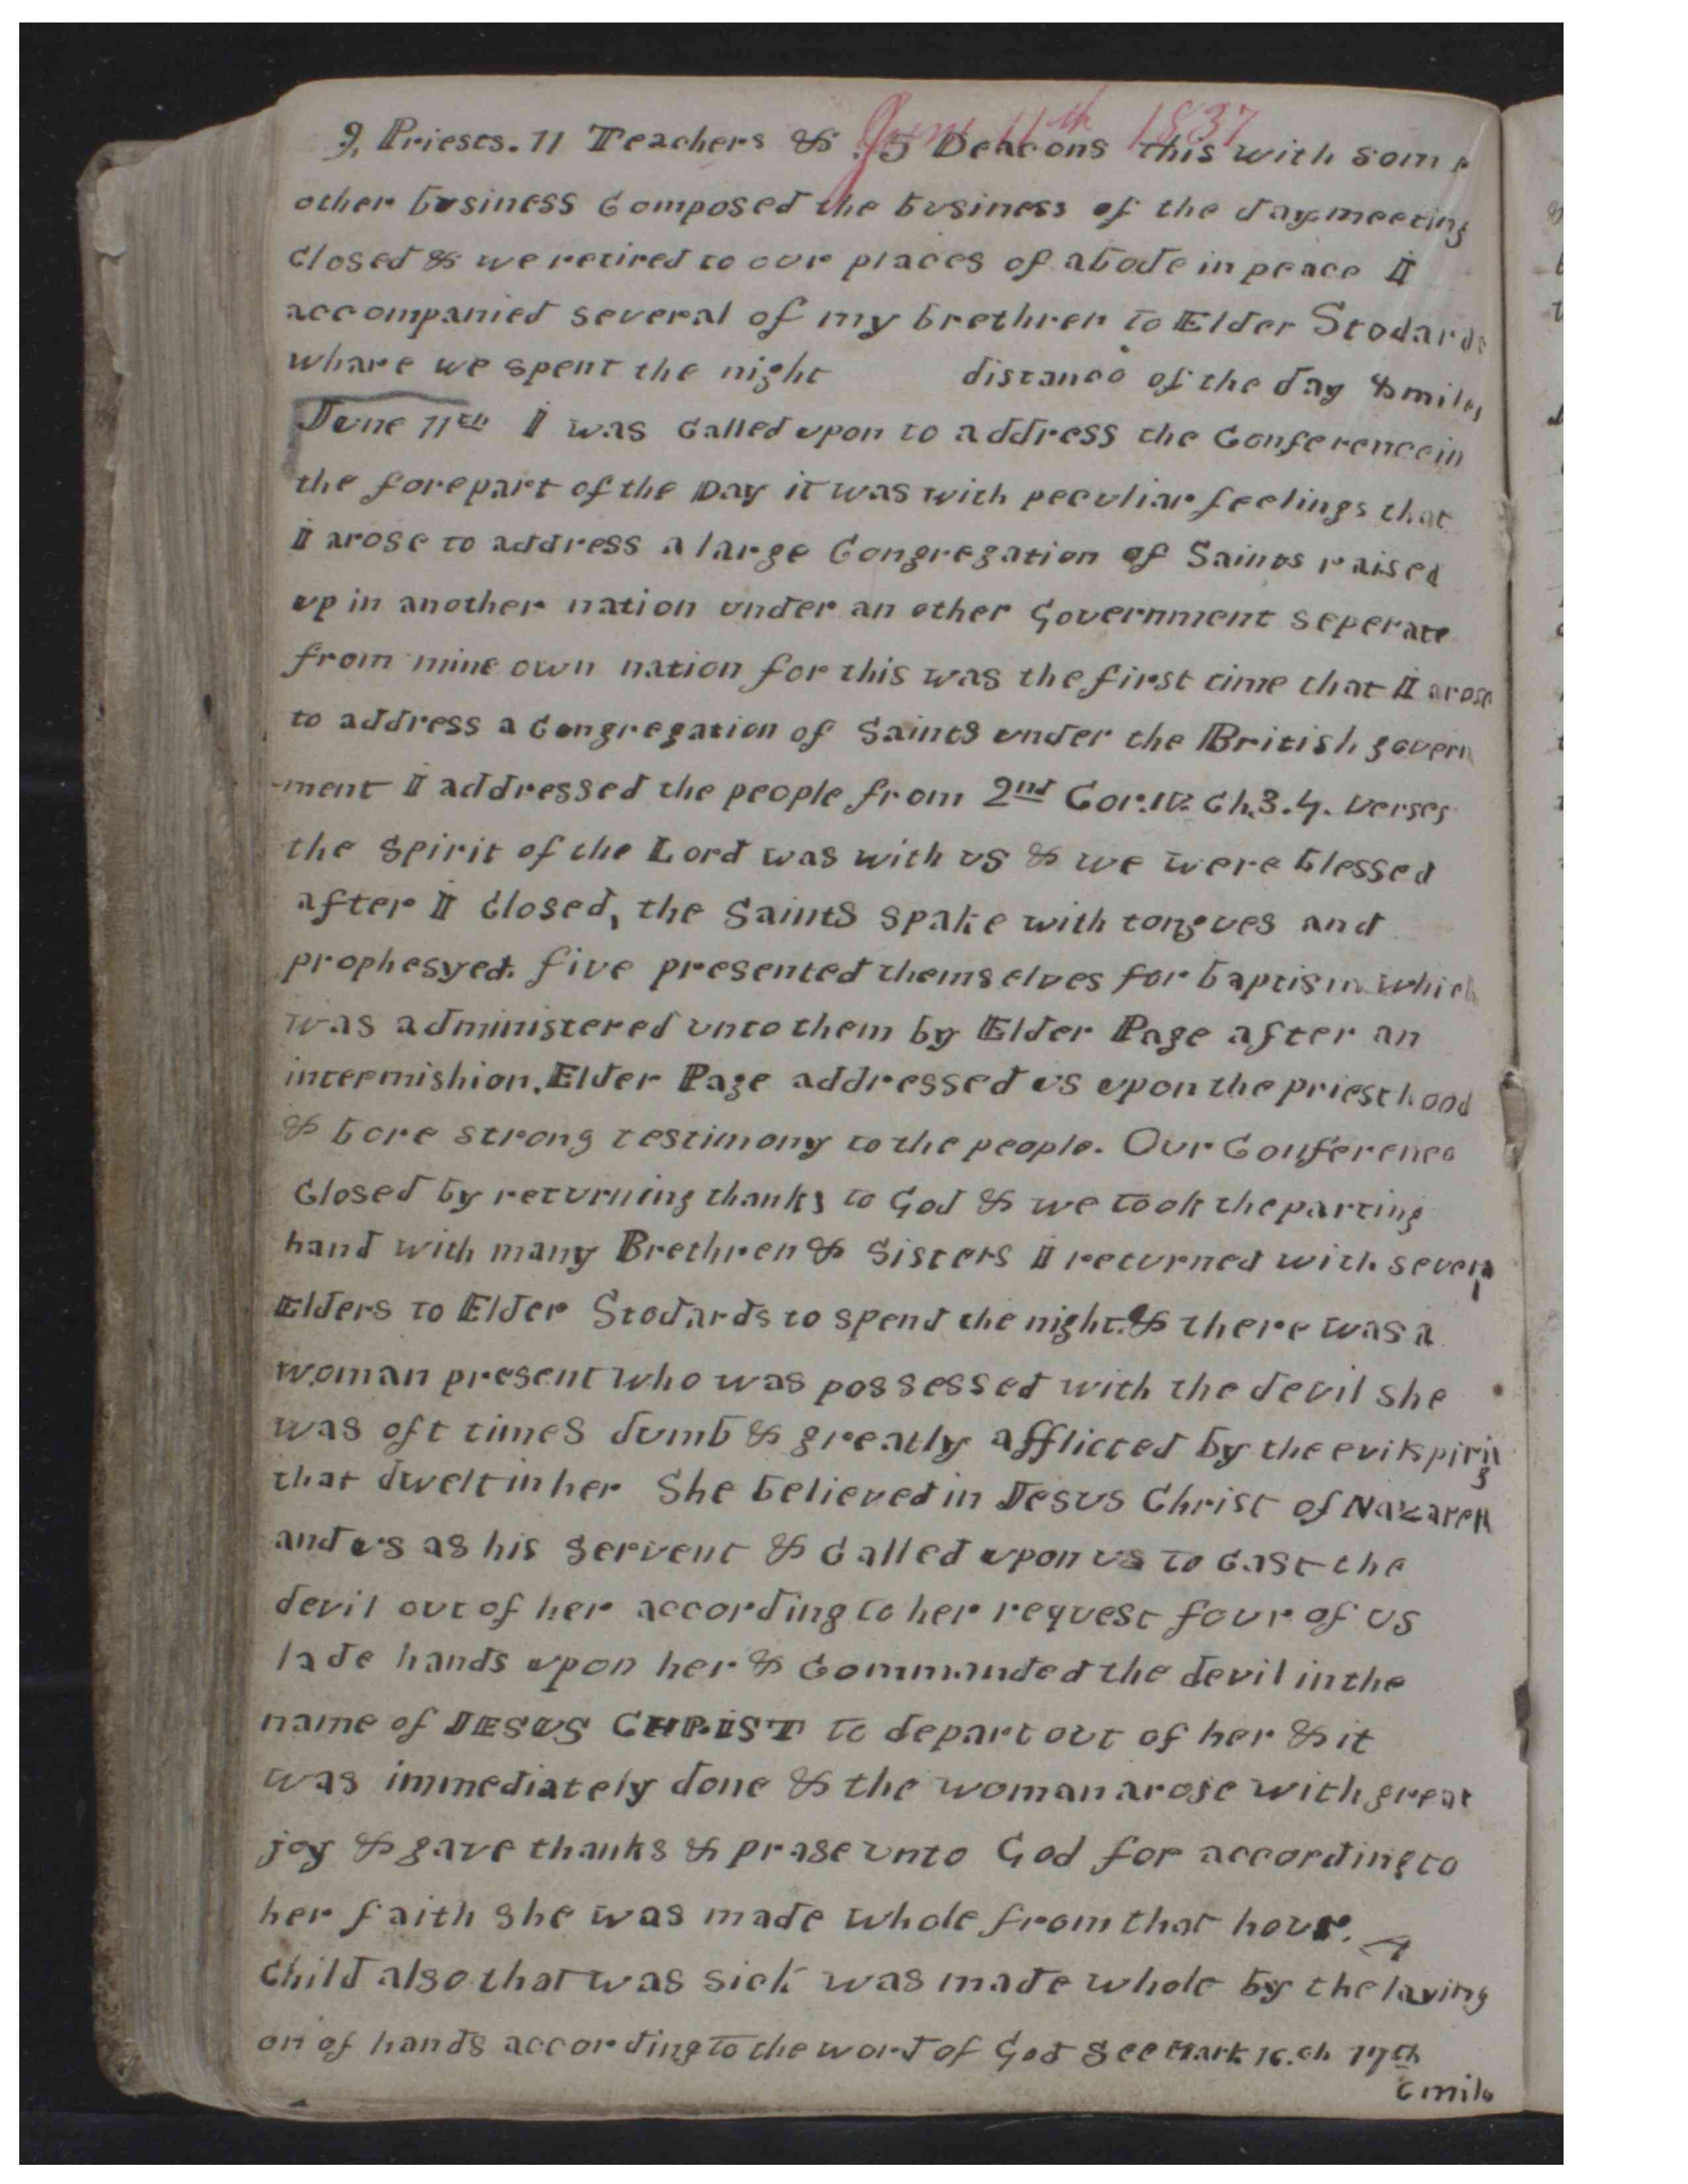 June 11th 1837
9, Priests. 11 Teachers & 5 Deacons this with some
other business Composed the business of the day meeting
Closed & we retired to our places of abode in peace I
accompanied several of my brethren to Elder Stodards
whare we spent the night distance of the day 8 miles
June 11th I was Called upon to address the Conference in
the forepart of the Day it was with peculiar feelings that
I arose to address a large Congregation of Saints raised
up in another nation under an other Government seperate
from mine own nation for this was the first time that I arose
to address a Congregation of Saints under the British govern
-ment I addressed the people from 2nd Cor. IV. Ch. 3. 4. verses
the spirit of the Lord was with us & we were blessed
after I Closed, the Saints spake with tongues and
prophesyed. five presented themselves for baptism which
was administered unto them by Elder Page after an
intermishion. Elder Page addressed us upon the priesthood
& bore strong testimony to the people. Our Conference
Closed by returning thanks to God & we took the parting
hand with many Brethren & Sisters I returned with severl
Elders to Elder Stodards to spend the night. & there was a
woman present who was possessed with the devil she
was oft times dumb & greatly afflicted by the evil spirits
that dwelt in her She believed in Jesus Christ of Nazareth
and us as his servent & Called upon us to Cast the
devil out of her according to her request four of us
lade hands upon her & Commanded the devil in the
name of JESUS CHRIST to depart out of her & it
was immediately done & the woman arose with great
joy & gave thanks & prase unto God for according to
her faith she was made whole from that hour. A
Child also that was sick was made whole by the laying
on of hands according to the word of God See Mark 16. ch 17th
6 mile